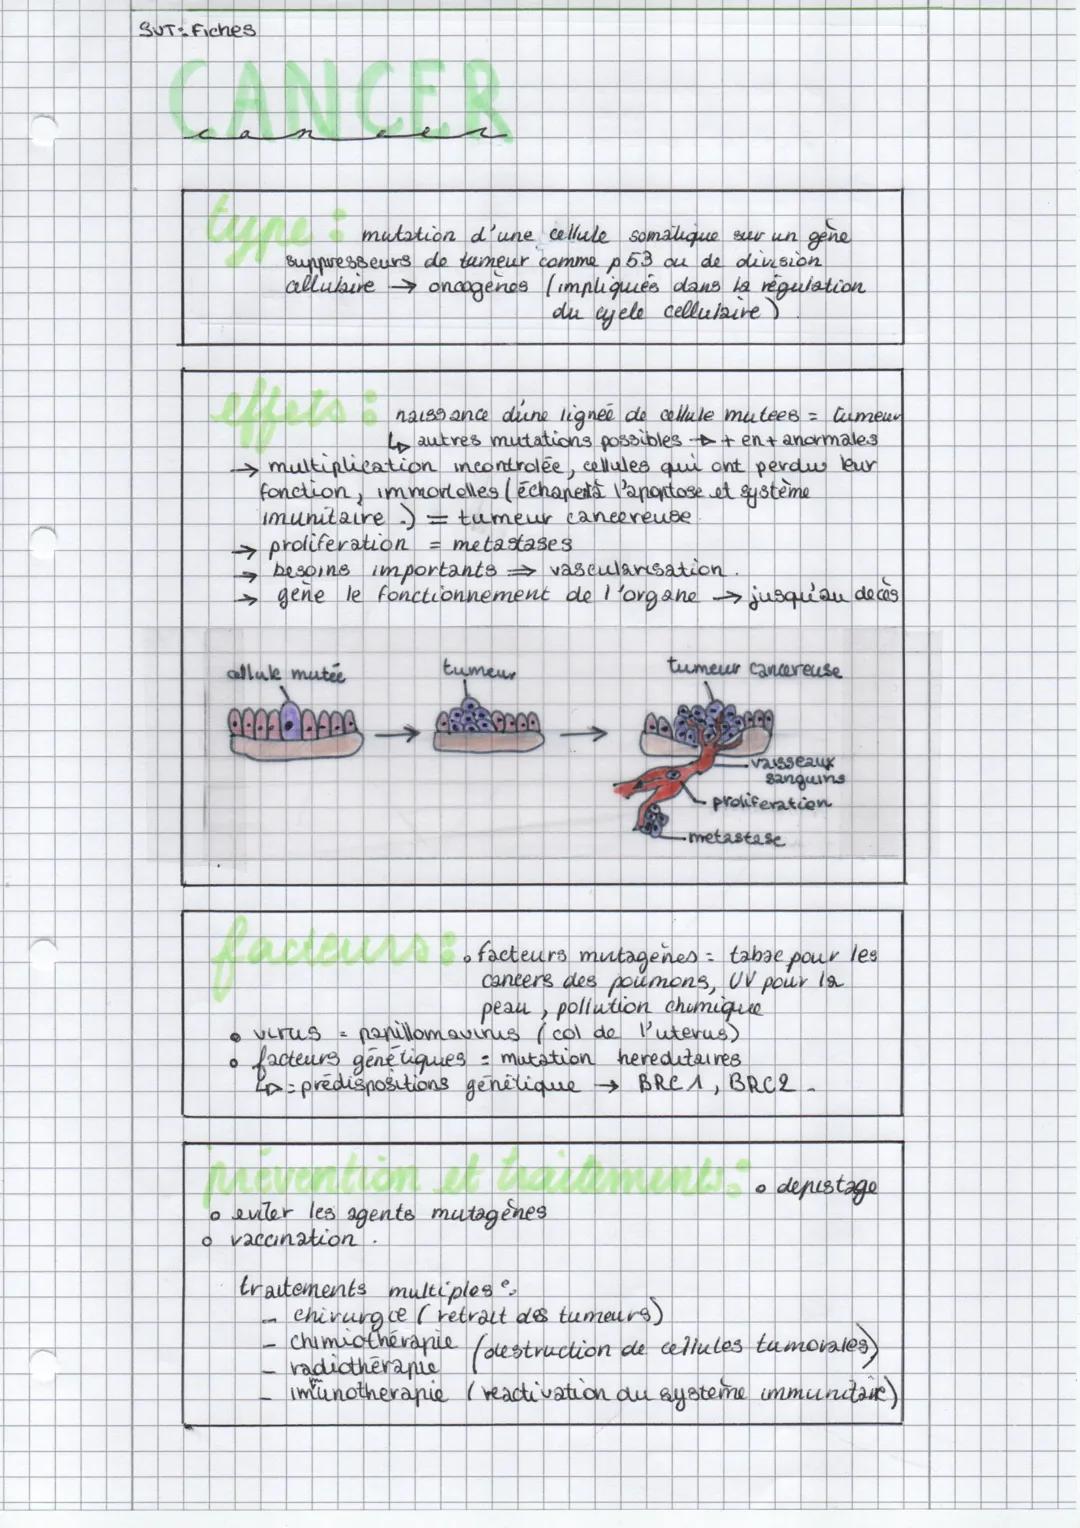 SVT: Fiches
CANCER
cancer
type : mutation d'une cellule somatique sur un gène
suppresseurs de tumeur comme p53 ou de division
cellulaire → oncogènes (impliqués dans la régulation
du cycle cellulaire).
effets : naissance d'une lignée de cellule mutees = tumeur
↳ autres mutations possibles → + en + anormales
→ multiplication incontrolée, cellules qui ont perdus leur
fonction, immortelles ( l'apoptose et système
imunitaire.) = tumeur cancereuse.
→ proliferation = metastases
→ besoins importants ⇒ vascularisation.
→ gène le fonctionnement de l'organe → jusqu'au decès
cellule mutée
tumeur
tumeur cancereuse
vaisseaux
sanguins
proliferation
metastase
facteurs : • facteurs mutagènes = tabac pour les
cancers des poumons, UV pour la
peau, pollution chimique
• virus = papillomavirus (col de l'uterus)
• facteurs génétiques = mutation hereditaires
↳ = prédispositions génétique → BRC1, BRC2.
prévention et traitements : • depistage
• eviter les agents mutagènes
• vaccination.
traitements multiples :
- chirurgie (retrait des tumeurs)
- chimiothérapie
(destruction de cellules tumorales)
- radiothérapie
- immunotherapie (reactivation du système immunitaire)